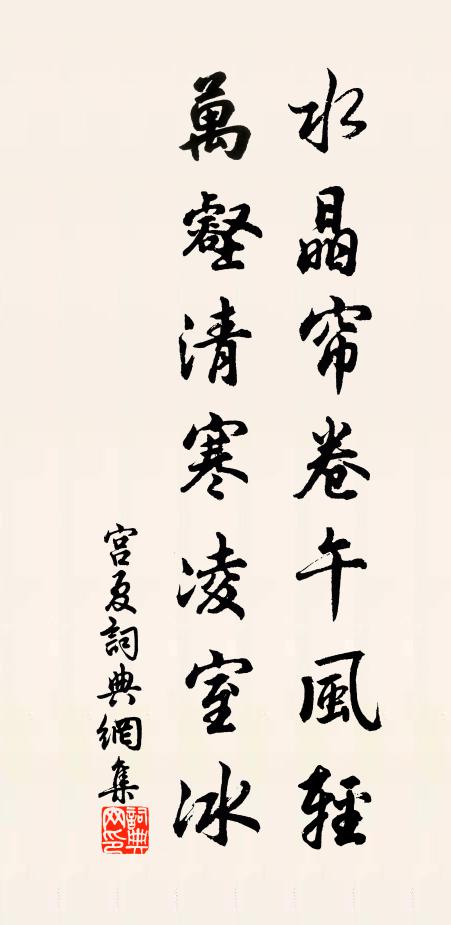 水晶帘卷午風輕
萬壑清寒凌室冰
宮夏詞典網集
詞典網印